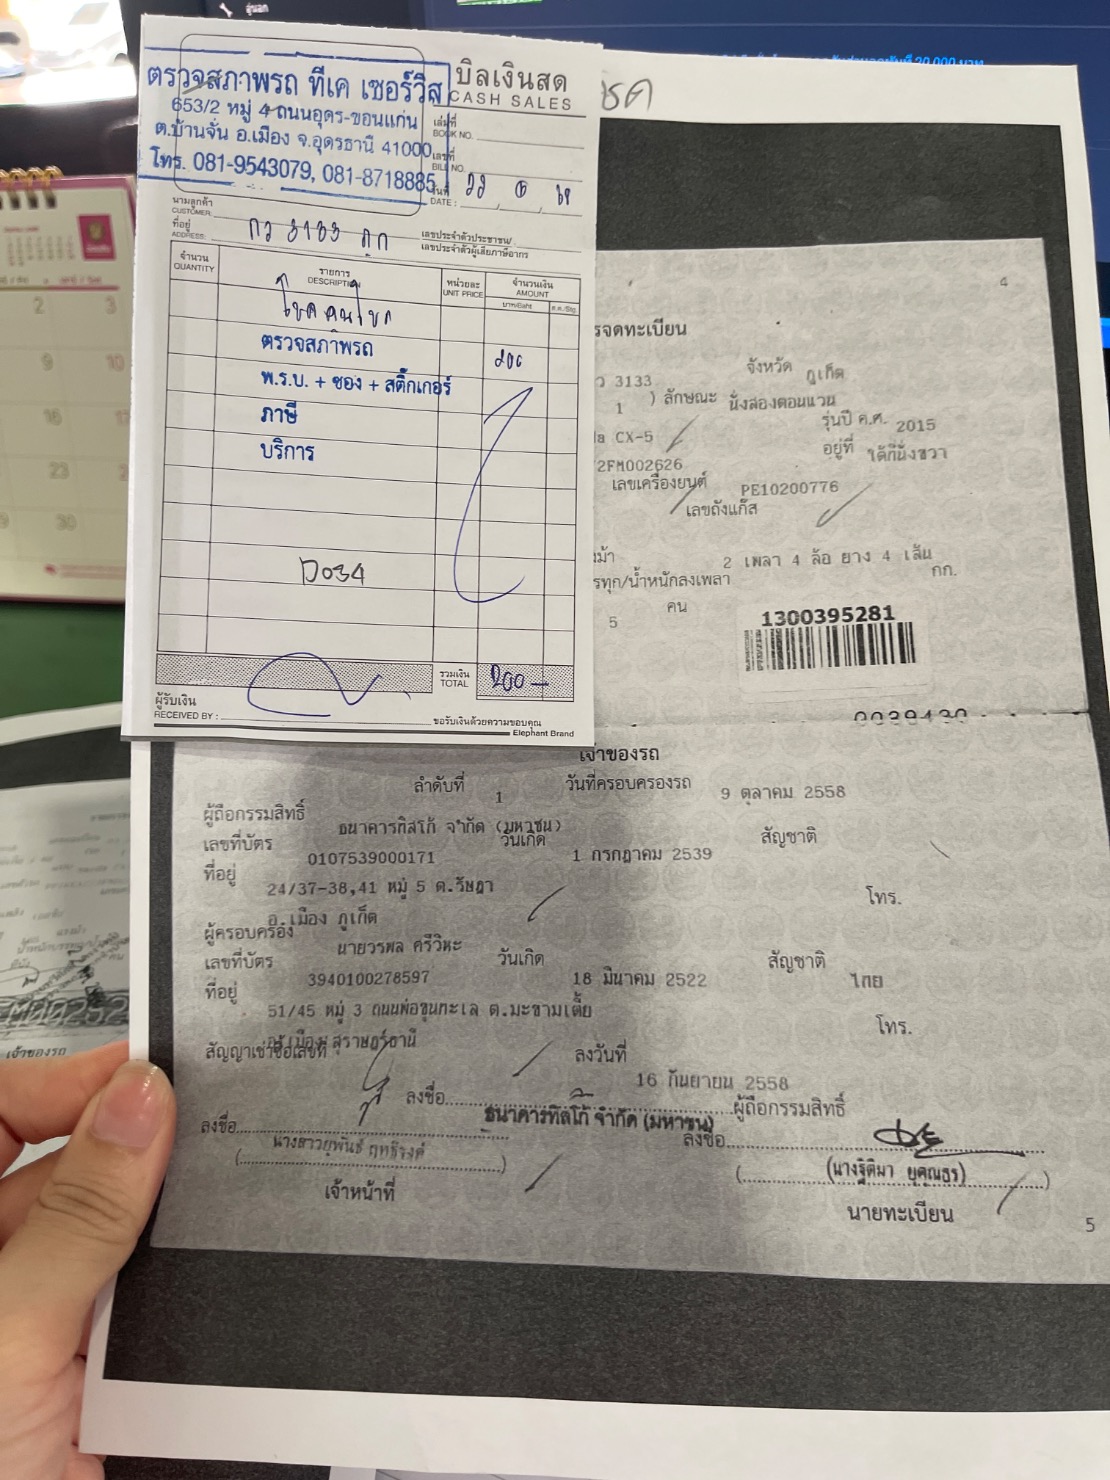 บิลเงินสด
CASH SALES
ตรวจสภาพรถ ทีเค เซอร์วิส
653/2 หมู่ 4 ถนนอุดร-ขอนแก่น
ต.บ้านจั่น อ.เมือง จ.อุดรธานี 41000
โทร. 081-9543079, 081-8718885
เล่มที่
BOOK NO.
เลขที่
BILL NO.
วันที่
DATE :
นามลูกค้า
CUSTOMER:
ที่อยู่
ADDRESS:
กว 3133 ภก
เลขประจำตัวประชาชน/
เลขประจำตัวผู้เสียภาษีอากร
จำนวน
QUANTITY
รายการ
DESCRIPTION
หน่วยละ
UNIT PRICE
จำนวนเงิน
AMOUNT
บาท/Baht
ส.ต./Stg
ตรวจสภาพรถ 200
พ.ร.บ. + ซอง + สติ๊กเกอร์
ภาษี
บริการ
รวมเงิน
TOTAL
200 —
ผู้รับเงิน
RECEIVED BY :
ขอรับเงินด้วยความขอบคุณ
Elephant Brand
4
จดทะเบียน
ว 3133 จังหวัด ภูเก็ต
1 ) ลักษณะ นั่งสองตอนแวน
รุ่นปี ค.ศ. 2015
CX-5
อยู่ที่ ใต้ที่นั่งขวา
2FM002626
เลขเครื่องยนต์ PE10200776
เลขถังแก๊ส
ม้า 2 เพลา 4 ล้อ ยาง 4 เส้น
รทุก/น้ำหนักลงเพลา กก.
5 คน
1300395281
เจ้าของรถ
ลำดับที่ 1 วันที่ครอบครองรถ 9 ตุลาคม 2558
ผู้ถือกรรมสิทธิ์ ธนาคารทิสโก้ จำกัด (มหาชน)
เลขที่บัตร 0107539000171 วันเกิด 1 กรกฎาคม 2539 สัญชาติ
ที่อยู่ 24/37-38,41 หมู่ 5 ต.รัษฎา
อ.เมือง ภูเก็ต โทร.
ผู้ครอบครอง นายวรพล ศรีวิหะ
เลขที่บัตร 3940100278597 วันเกิด 18 มีนาคม 2522 สัญชาติ ไทย
ที่อยู่ 51/45 หมู่ 3 ถนนพ่อขุนทะเล ต.มะขามเตี้ย
อ.เมือง สุราษฎร์ธานี โทร.
สัญญาเช่าซื้อเลขที่ ลงวันที่ 16 กันยายน 2558
ลงชื่อ ธนาคารทิสโก้ จำกัด (มหาชน) ผู้ถือกรรมสิทธิ์
ลงชื่อ
ลงชื่อ
(นางฐิติมา ยุคุณธร)
เจ้าหน้าที่
นายทะเบียน
5
เจ้าของรถ
2
3
9
10
16
23
30